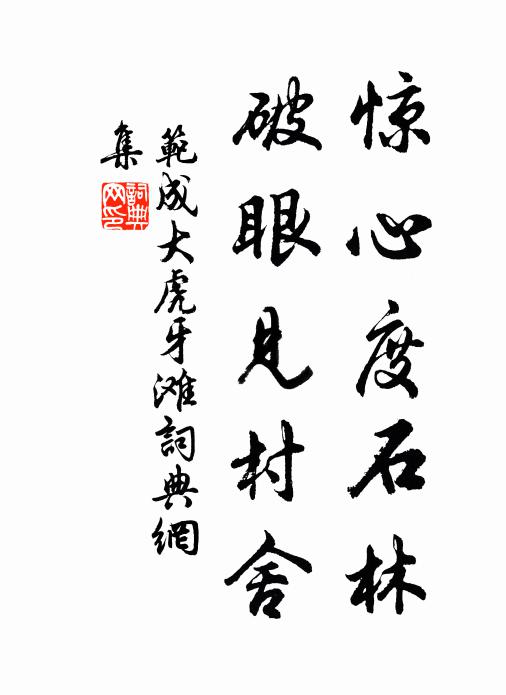 惊心度石林
破眼見村舍
範成大虎牙滩詞典網
集
詞典
网印